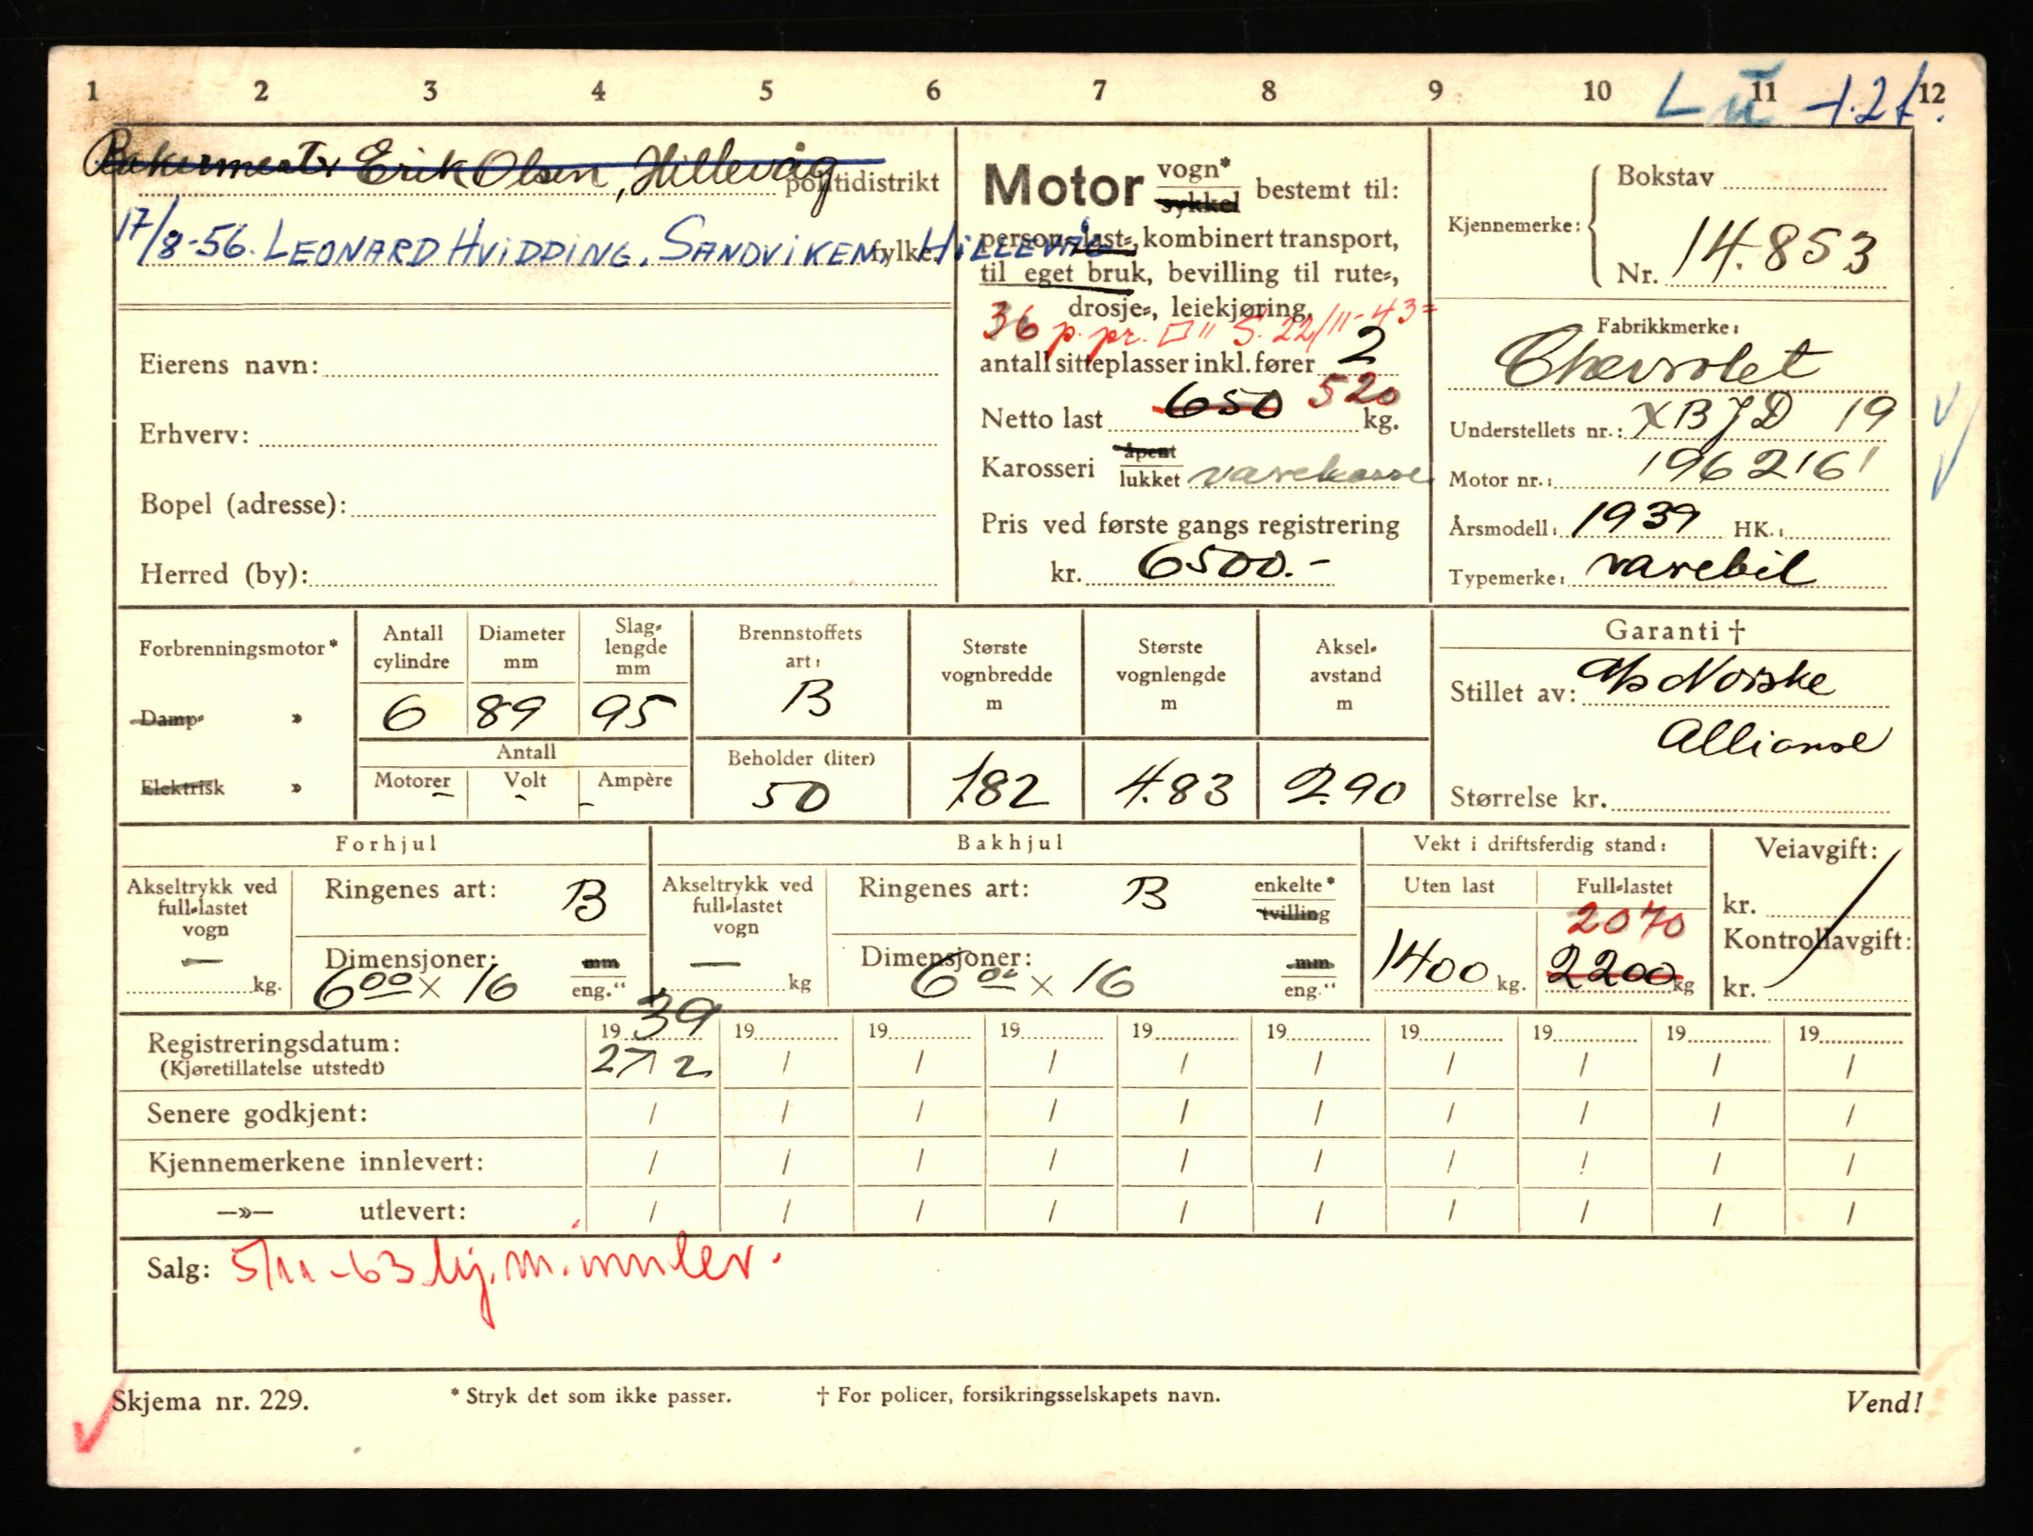 1 2 3 4 5 6 7 8 9 10 11 12
Bakermestr Erik Olsen, Hillevåg
politidistrikt
17/8-56. LEONARD HVIDDING, SANDVIKEN, HILLEVÅG
fylke.
Eierens navn:
Erhverv:
Bopel (adresse):
Herred (by):
Motor vogn* sykkel bestemt til:
person-, last-, kombinert transport,
til eget bruk, bevilling til rute-,
drosje-, leiekjøring,
22/11-43
antall sitteplasser inkl. fører 2
Netto last 650 520 kg.
Karosseri åpent lukket varekasse
Pris ved første gangs registrering
kr. 6500.-
Kjennemerke: Bokstav
Nr. 14.853
Fabrikkmerke:
Chevrolet
Understellets nr.: XBJD 19
Motor nr.: 1962161
Årsmodell: 1939 HK.:
Typemerke: varebil
Forbrenningsmotor*
Damp- »
Elektrisk »
Antall cylindre
6
Diameter mm
89
Slag-lengde mm
95
Antall
Motorer Volt Ampère
- - -
Brennstoffets art:
B
Beholder (liter)
50
Største vognbredde m
1.82
Største vognlengde m
4.83
Aksel-avstand m
2.90
Garanti †
Stillet av: A/s Norske
Allianse
Størrelse kr.
Forhjul
Akseltrykk ved full-lastet vogn
— kg.
Ringenes art: B
Dimensjoner: mm
6.00 x 16 eng."
Bakhjul
Akseltrykk ved full-lastet vogn
— kg
Ringenes art: B enkelte* tvilling
Dimensjoner: mm
6.00 x 16 eng."
Vekt i driftsferdig stand:
Uten last Full-lastet
2070
1400 kg. 2200 kg
Veiavgift:
kr.
Kontrollavgift:
kr.
Registreringsdatum: 19 39 19 19 19 19 19 19 19 19 19
(Kjøretillatelse utstedt) 27/2 / / / / / / / / /
Senere godkjent: / / / / / / / / / /
Kjennemerkene innlevert: / / / / / / / / / /
—»— utlevert: / / / / / / / / / /
Salg: 5/11-63 kj.m. innlev.
Skjema nr. 229. * Stryk det som ikke passer. † For policer, forsikringsselskapets navn. Vend!